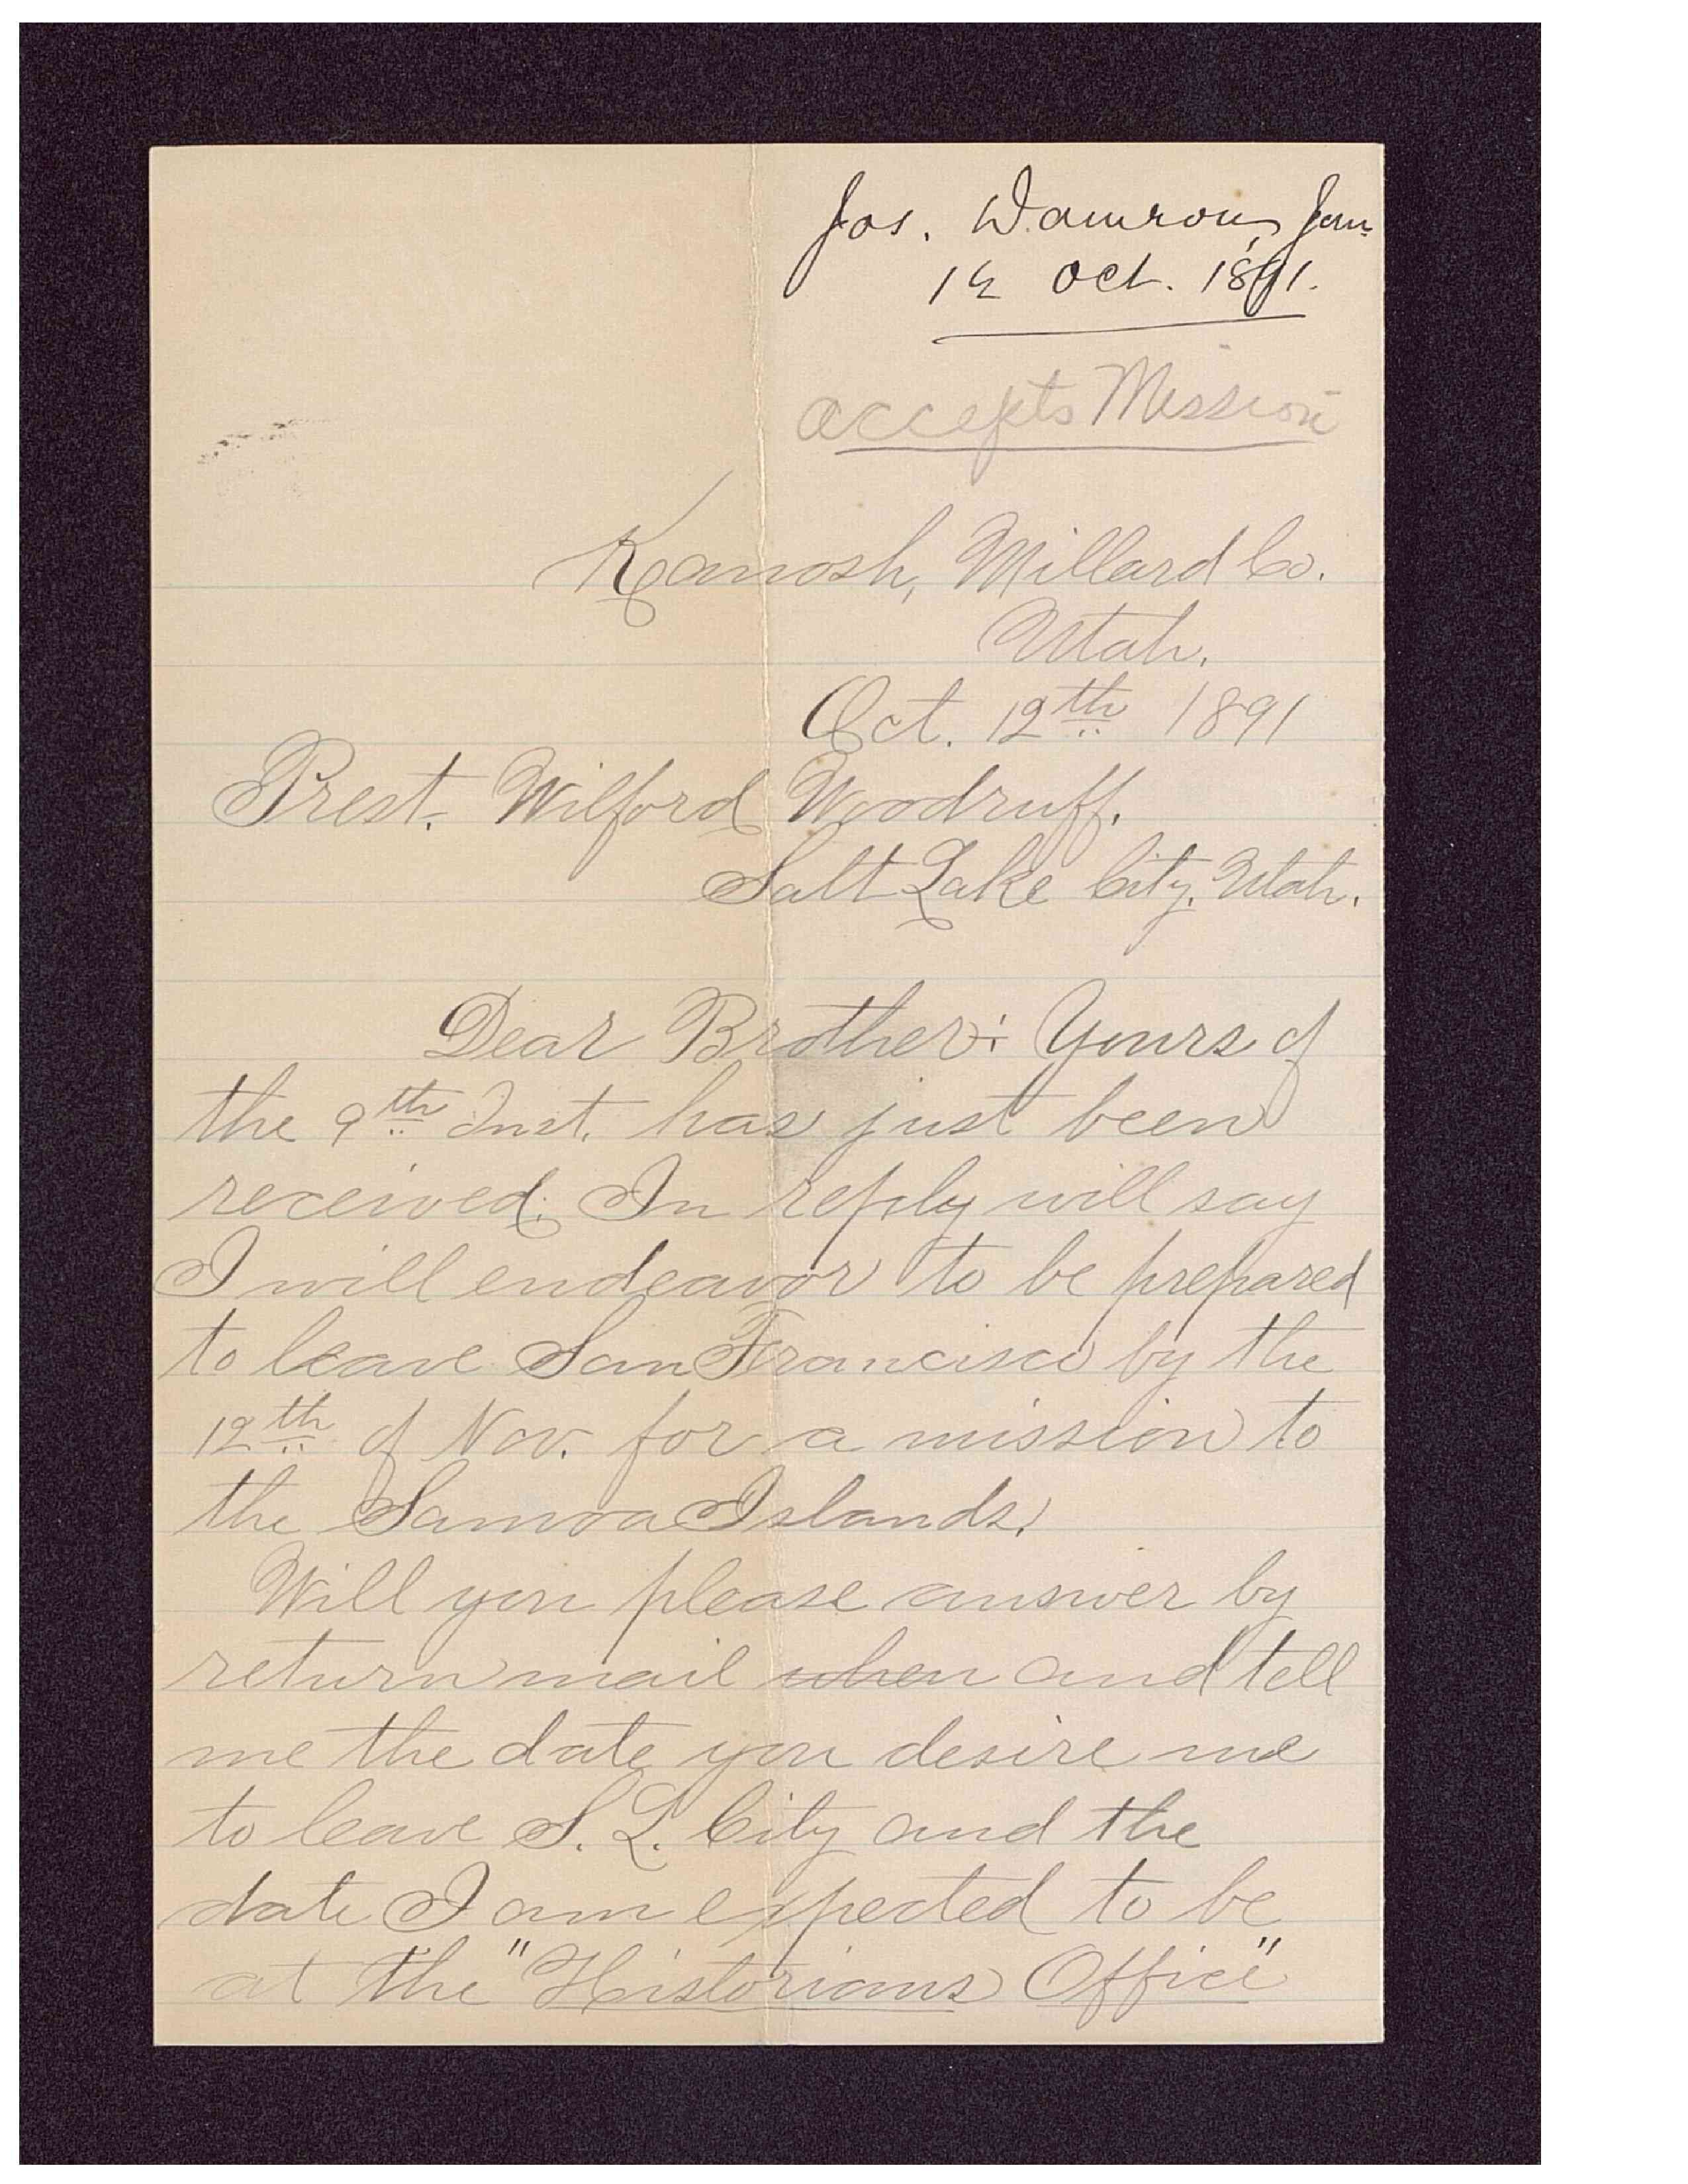 Jos. Damron, Jun.
12 Oct. 1891.
accepts Mission
Kanosh, Millard Co.
Utah.
Oct. 12th 1891
Prest. Wilford Woodruff.
Salt Lake City, Utah.
Dear Brother: Yours of
the 9th Inst. has just been
received. In reply will say
I will endeavor to be prepared
to leave San Francisco by the
12th of Nov. for a mission to
the Samoa Islands.
Will you please answer by
return mail when and tell
me the date you desire me
to leave S. L. City and the
date I am expected to be
at the "Historians Office"